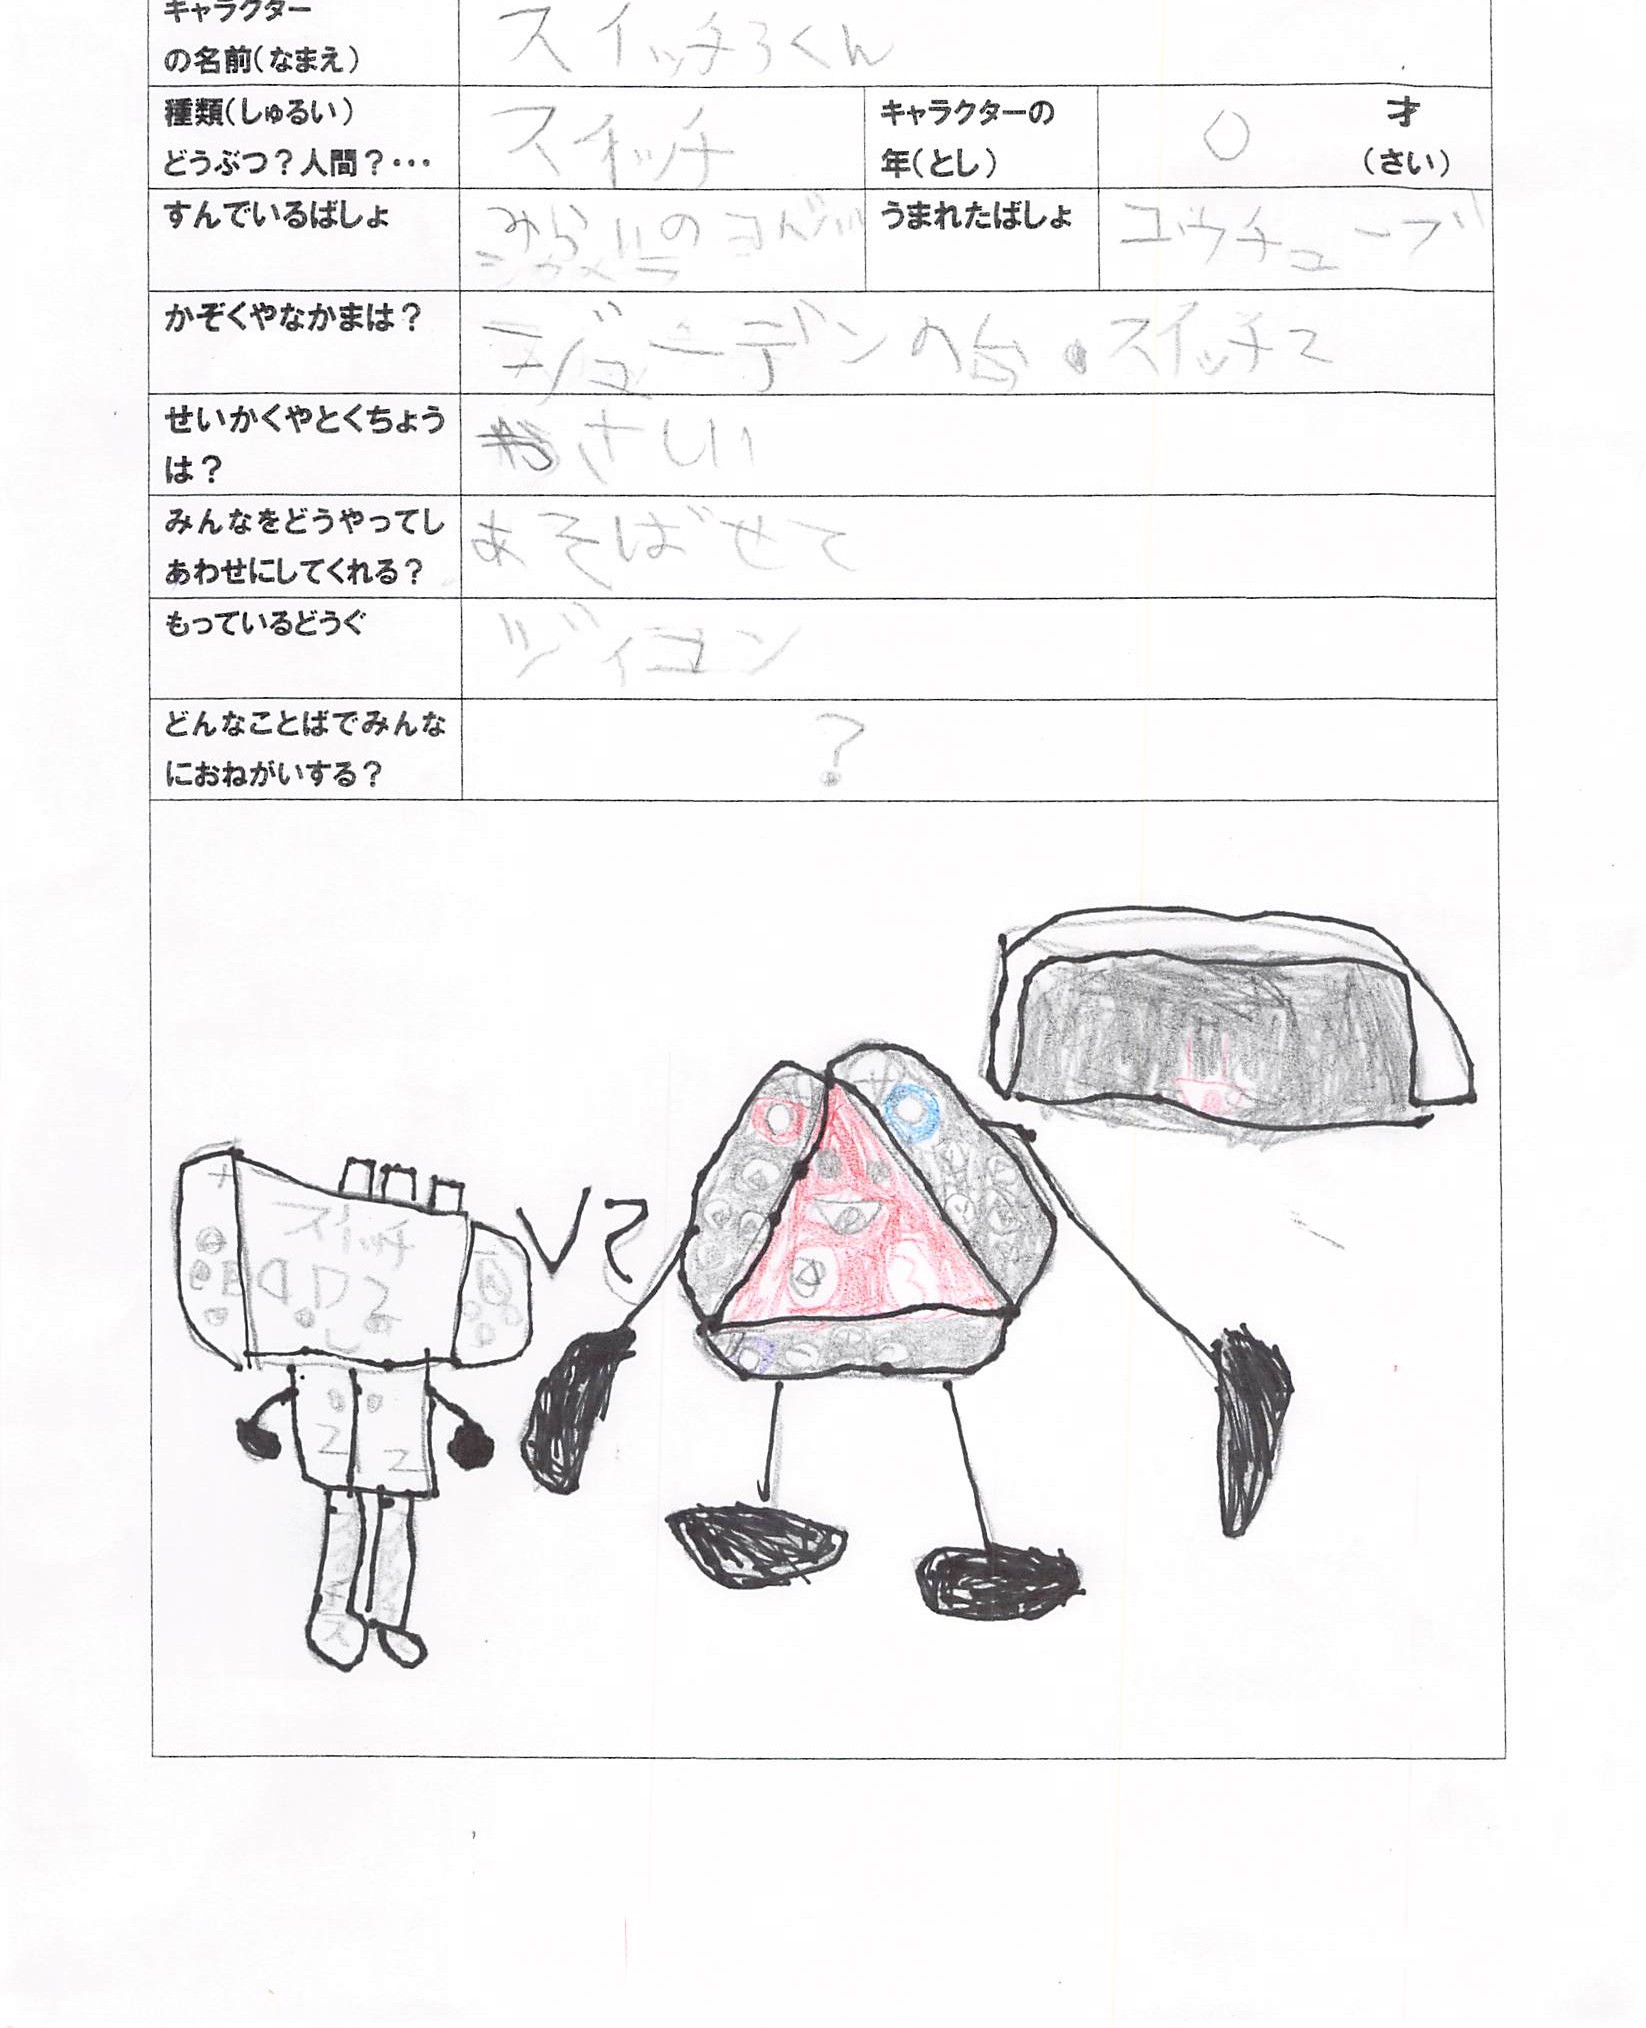 キャラクター
の名前(なまえ)
スイッチ3くん
種類(しゅるい)
どうぶつ?人間?・・・
スイッチ
キャラクターの
年(とし)
0
才
(さい)
すんでいるばしょ
みらいのコンビニ
うまれたばしょ
ユウチューブ
かぞくやなかまは?
ジューデンの台・スイッチ2
せいかくやとくちょう
は?
やさしい
みんなをどうやってし
あわせにしてくれる?
あそばせて
もっているどうぐ
ジィコン
どんなことばでみんな
におねがいする?
?
スイッチ
2
3
2 2